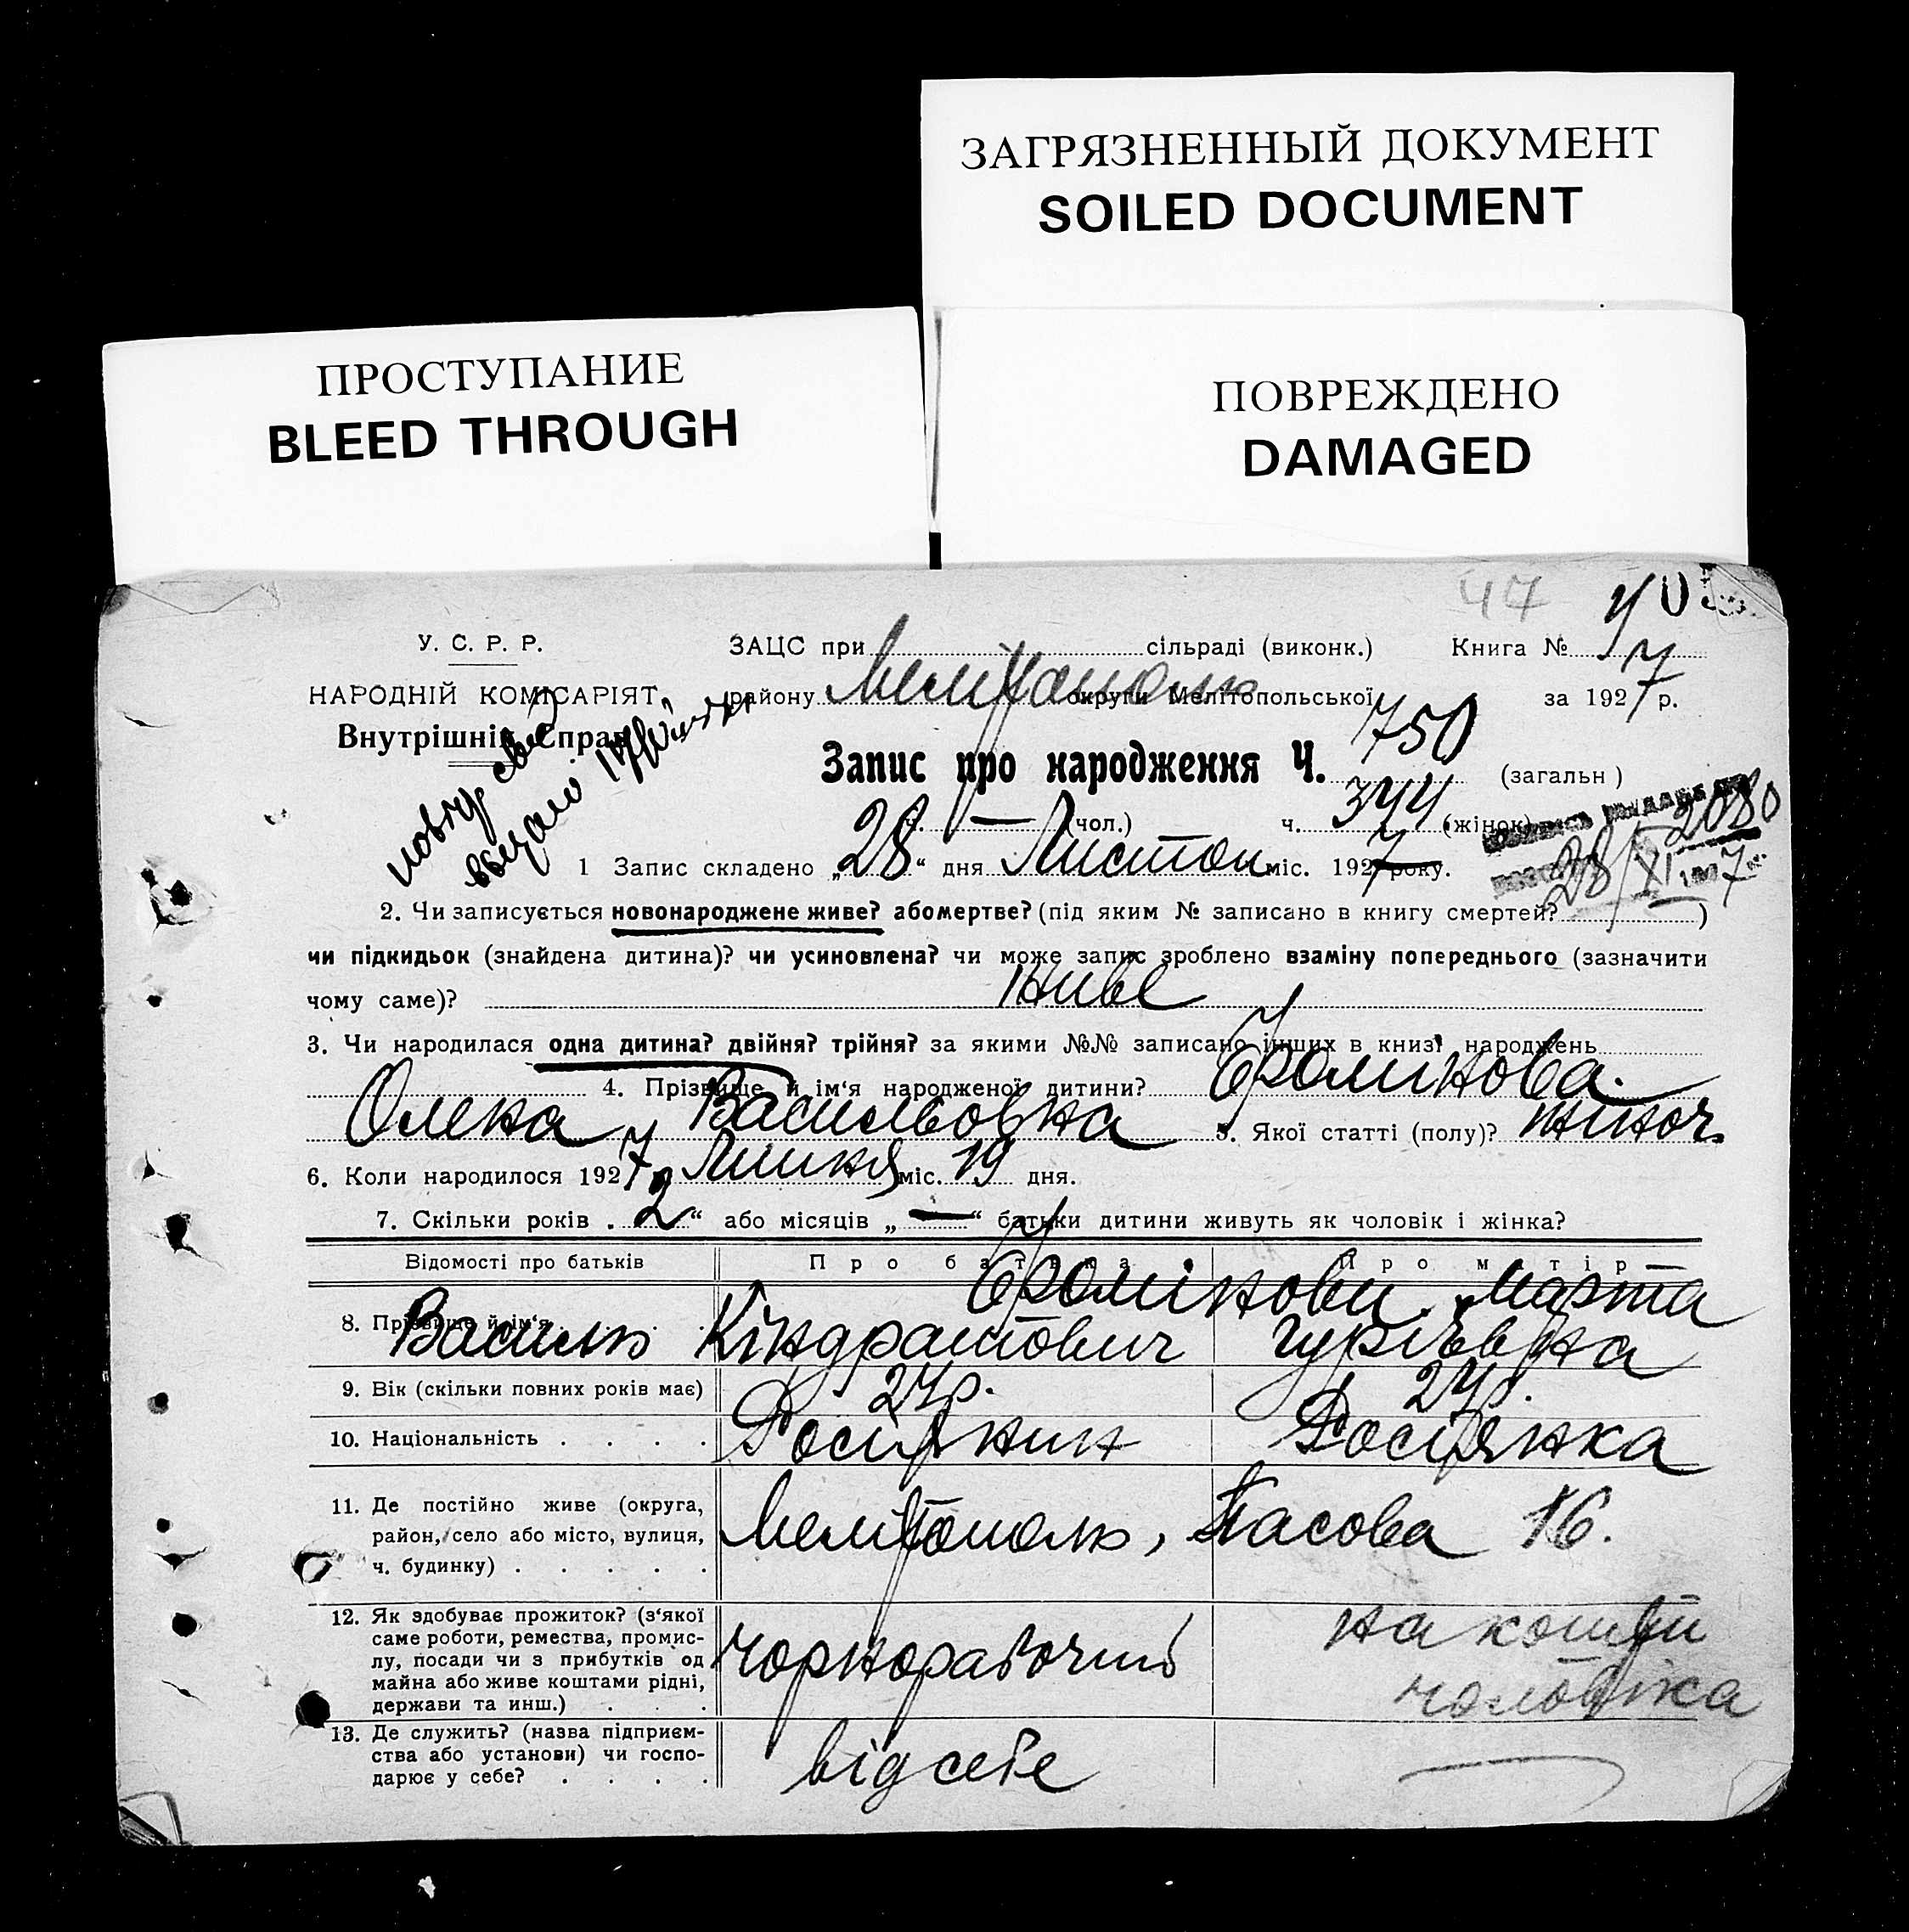 ЗАГРЯЗНЕННЫЙ ДОКУМЕНТ
SOILED DOCUMENT
ПРОСТУПАНИЕ
BLEED THROUGH
ПОВРЕЖДЕНО
DAMAGED
47
У. С. Р. Р.
ЗАЦС при сільраді (виконк.) Книга №
НАРОДНІЙ КОМІСАРІЯТ
Внутрішніх Справ
району Мелітополь округи Мелітопольської за 1927 р.
Запис про народження Ч. 750 (загальн)
ч. — (чол.) ч. 344 (жінок)
2080
28/XI 1927
1 Запис складено „28“ дня Листоп міс. 1927 року.
2. Чи записується новонароджене живе? або мертве? (під яким № записано в книгу смертей? )
чи підкидьок (знайдена дитина)? чи усиновлена? чи може запис зроблено взаміну попереднього (зазначити
чому саме)? живе
3. Чи народилася одна дитина? двійня? трійня? за якими №№ записано інших в книзі народжень
4. Прізвище й ім‘я народженої дитини?
Олена Васильовна 5. Якої статті (полу)? жіноч.
6. Коли народилося 1927 Липня міс. 19 дня.
7. Скільки років „2“ або місяців „—“ батьки дитини живуть як чоловік і жінка?
Відомості про батьків Про батька Про матір
8. Прізвище й ім‘я Василь Кіндратович Марта
9. Вік (скільки повних років має) 27р. 27р.
10. Національність Росіянин Росіянка
11. Де постійно живе (округа,
район, село або місто, вулиця,
ч. будинку)
Мелітополь, 16.
12. Як здобуває прожиток? (з‘якої
саме роботи, ремества, промис-
лу, посади чи з прибутків од
майна або живе коштами рідні,
держави та инш.)
чорнорабочий
на кошти
чоловіка
13. Де служить? (назва підприєм-
ства або установи) чи госпо-
дарює у себе?
від себе